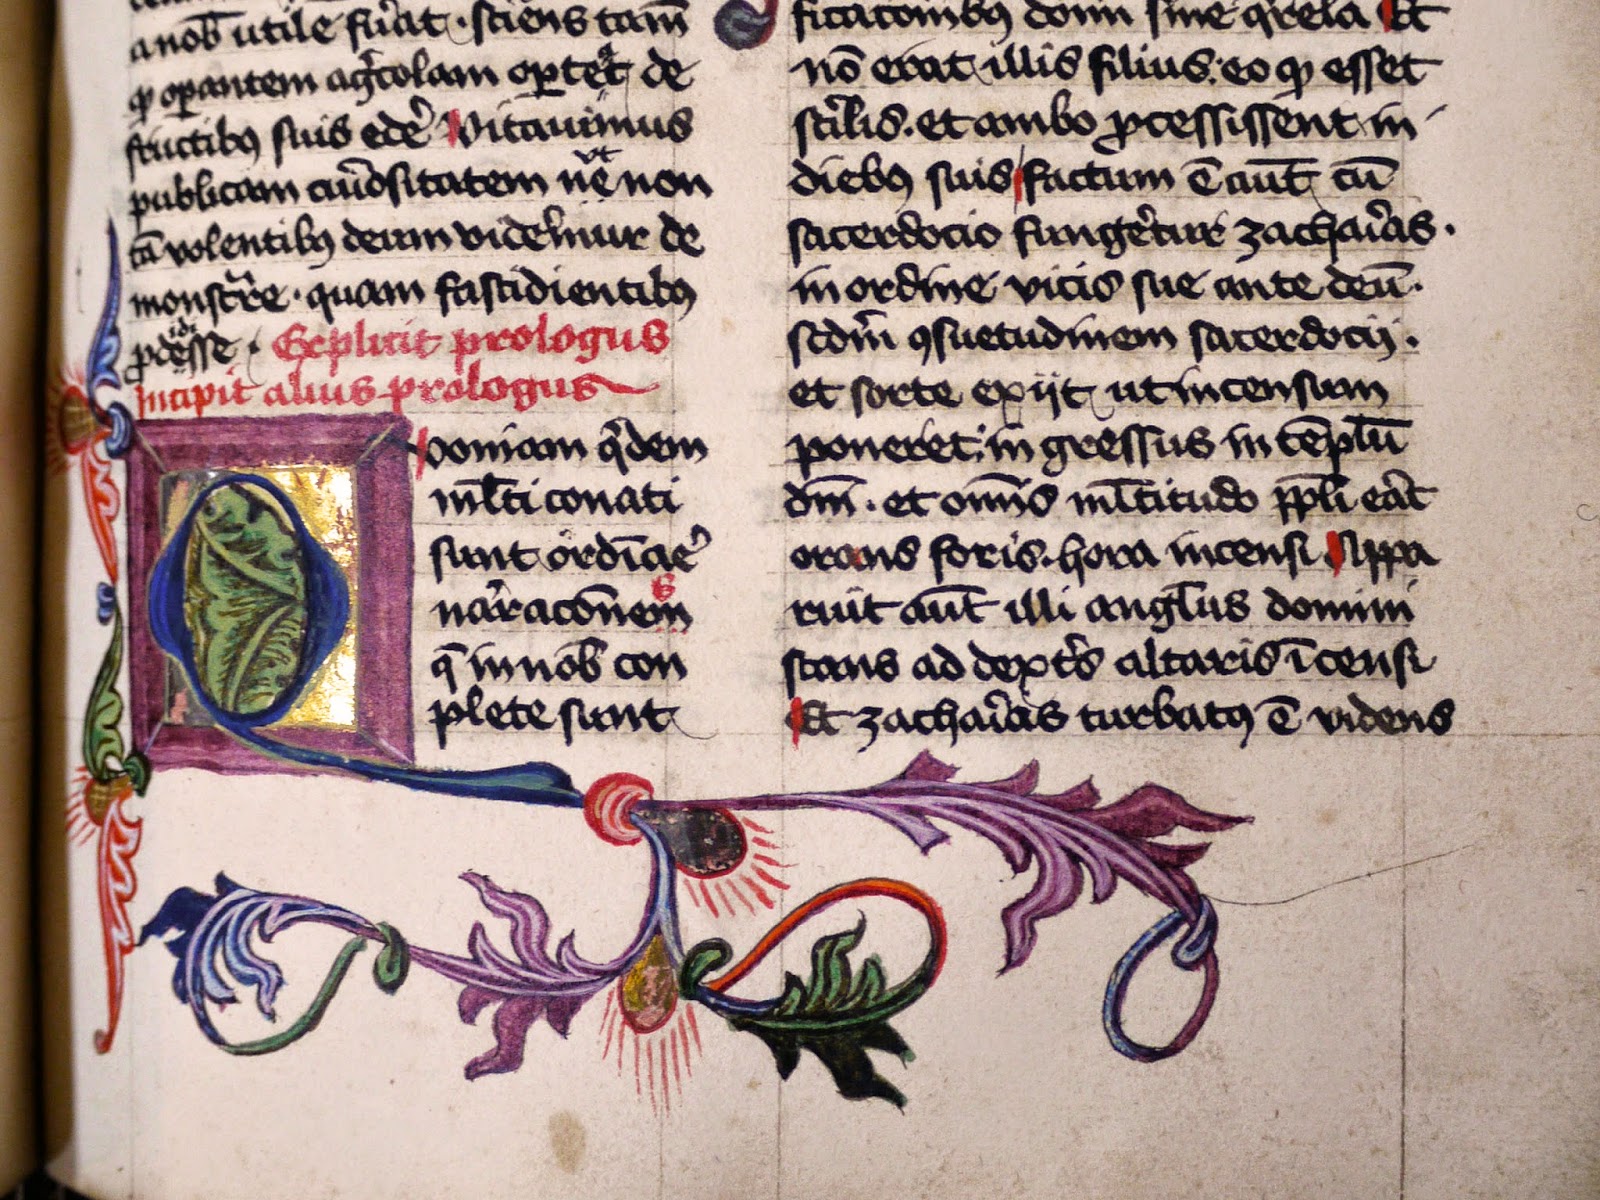 a nob̄ utile fuˀat · sciens tam̄
ꝙ oꝑantem agͥcolam oꝑtet de
fructibꝰ suis edeˀ Vitauimus
publicam cuͥositatem ne ut non
tā volentibꝰ deum videˀmur de
monstraˀe · quam fastidientibꝰ
ꝓdidesse · Explicit prologus
Incipit alius prologus
Quoniam qͥdem
ml̄ti conati
sunt ordīaeˀ
naˀracōnem
q̄ in nob̄ con
plete sunt
ficacionibꝰ domi sine qˀrela Et
nō erat illis filius · eo ꝙ esset
stˀilis · et ambo ꝓcessissent in
diebꝰ suis factum ē aut̄ cū
sacerdocio fungeˀtur zachaͥas ·
in ordine vicis sue ante deū ·
scdm̄ ꝯsuetudinem sacerdocij ·
et sorte exijt ut incensum
poneret · in gressus in templū
dm̄ · et omīs ml̄titudo ppl̄i eāt
orans foris · hora incensi Appa
ruit aut̄ illi angl̄us domini
stans ad dextˀs altaris īcensi
Et zachaͥas turbatꝰ ē videns